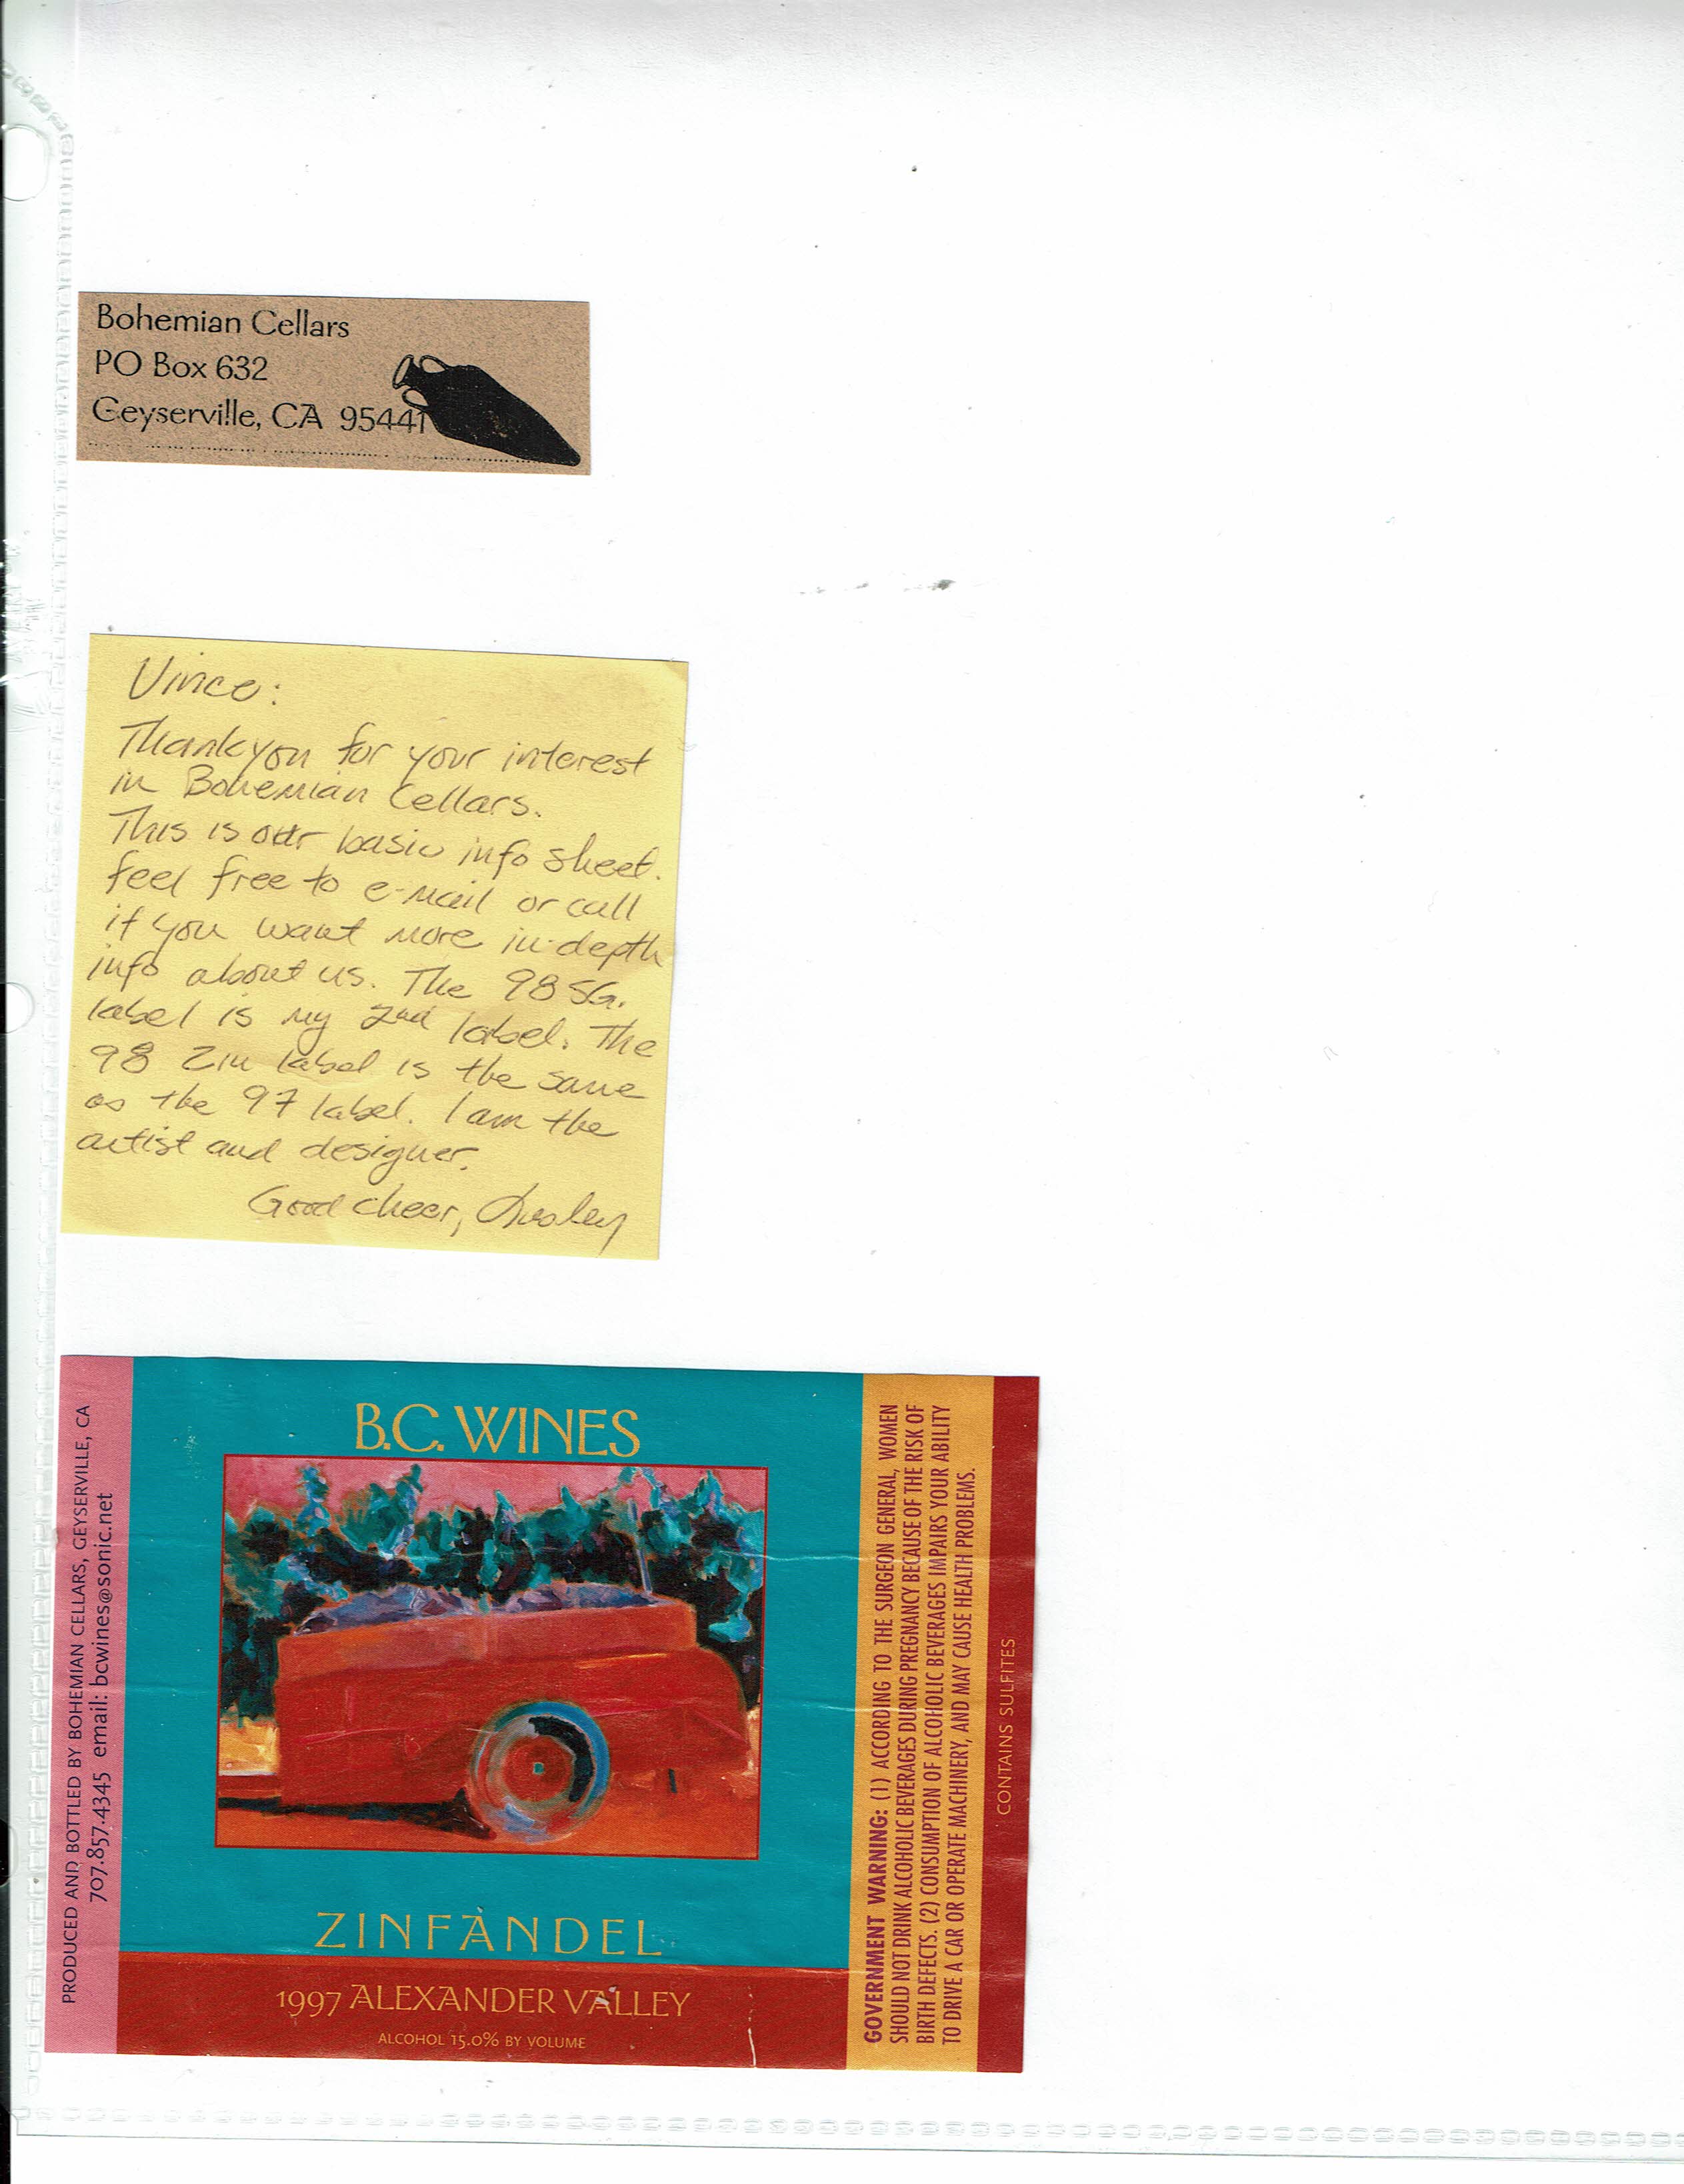 Bohemian Cellars
PO Box 632
Geyserville, CA 95441
Vince:
Thank you for your interest
in Bohemian Cellars.
This is our basic info sheet.
feel free to e-mail or call
if you want more in-depth
info about us. The 98 SG.
label is my 2nd label. The
98 Zin label is the same
as the 97 label. I am the
artist and designer.
Good cheer,
PRODUCED AND BOTTLED BY BOHEMIAN CELLARS, GEYSERVILLE, CA
707.857.4345 email: bcwines@sonic.net
B.C. WINES
ZINFANDEL
1997 ALEXANDER VALLEY
ALCOHOL 15.0% BY VOLUME
GOVERNMENT WARNING: (1) ACCORDING TO THE SURGEON GENERAL, WOMEN
SHOULD NOT DRINK ALCOHOLIC BEVERAGES DURING PREGNANCY BECAUSE OF THE RISK OF
BIRTH DEFECTS. (2) CONSUMPTION OF ALCOHOLIC BEVERAGES IMPAIRS YOUR ABILITY
TO DRIVE A CAR OR OPERATE MACHINERY, AND MAY CAUSE HEALTH PROBLEMS.
CONTAINS SULFITES